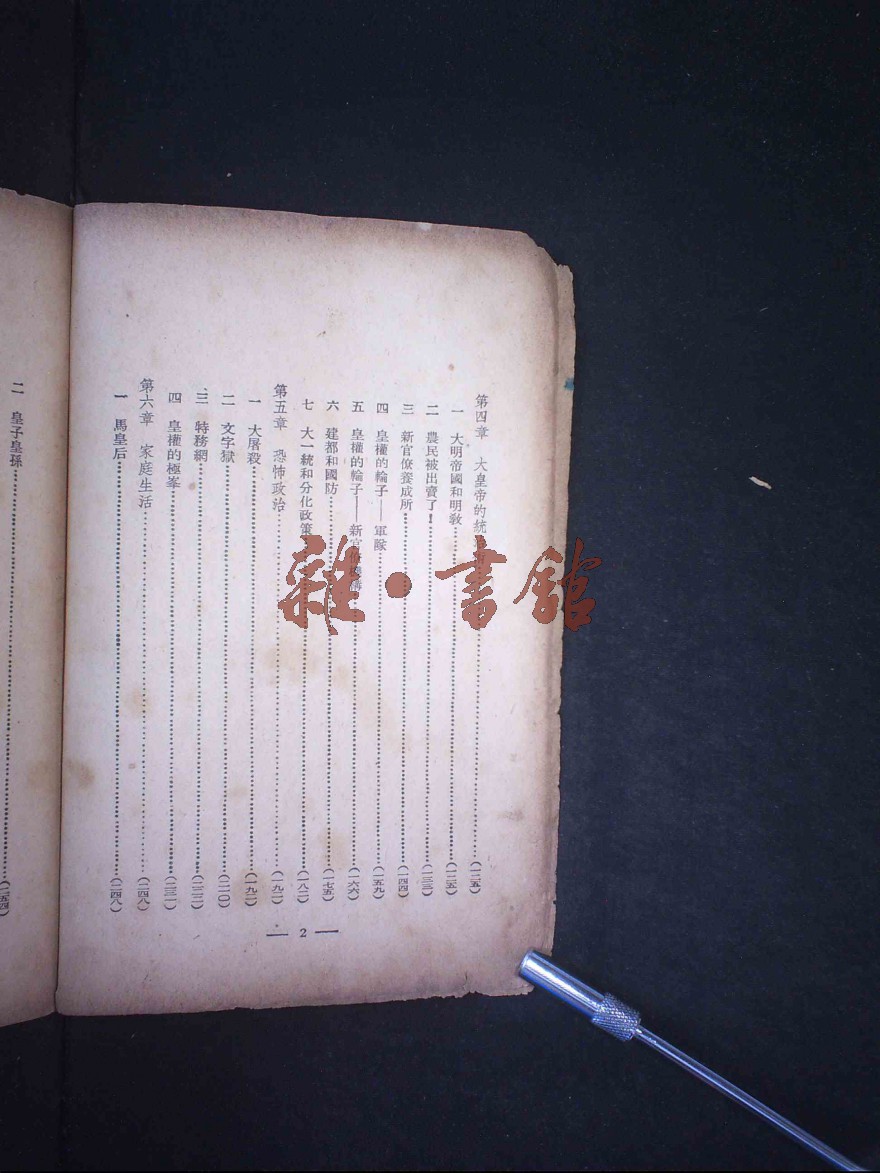 第四章 大皇帝的統……(一二五)
一 大明帝國和明教……(一二五)
二 農民被出賣了！……(一三三)
三 新官僚養成所……(一四四)
四 皇權的輪子——軍隊……(一五九)
五 皇權的輪子——新官僚機構……(一六六)
六 建都和國防……(一七五)
七 大一統和分化政策……(一八二)
第五章 恐怖政治……(一九二)
一 大屠殺……(一九二)
二 文字獄……(二一〇)
三 特務網……(二二二)
四 皇權的極峯……(二三一)
第六章 家庭生活……(二四八)
一 馬皇后……(二四八)
— 2 —
二 皇子皇孫……(二五四)
雜·書館